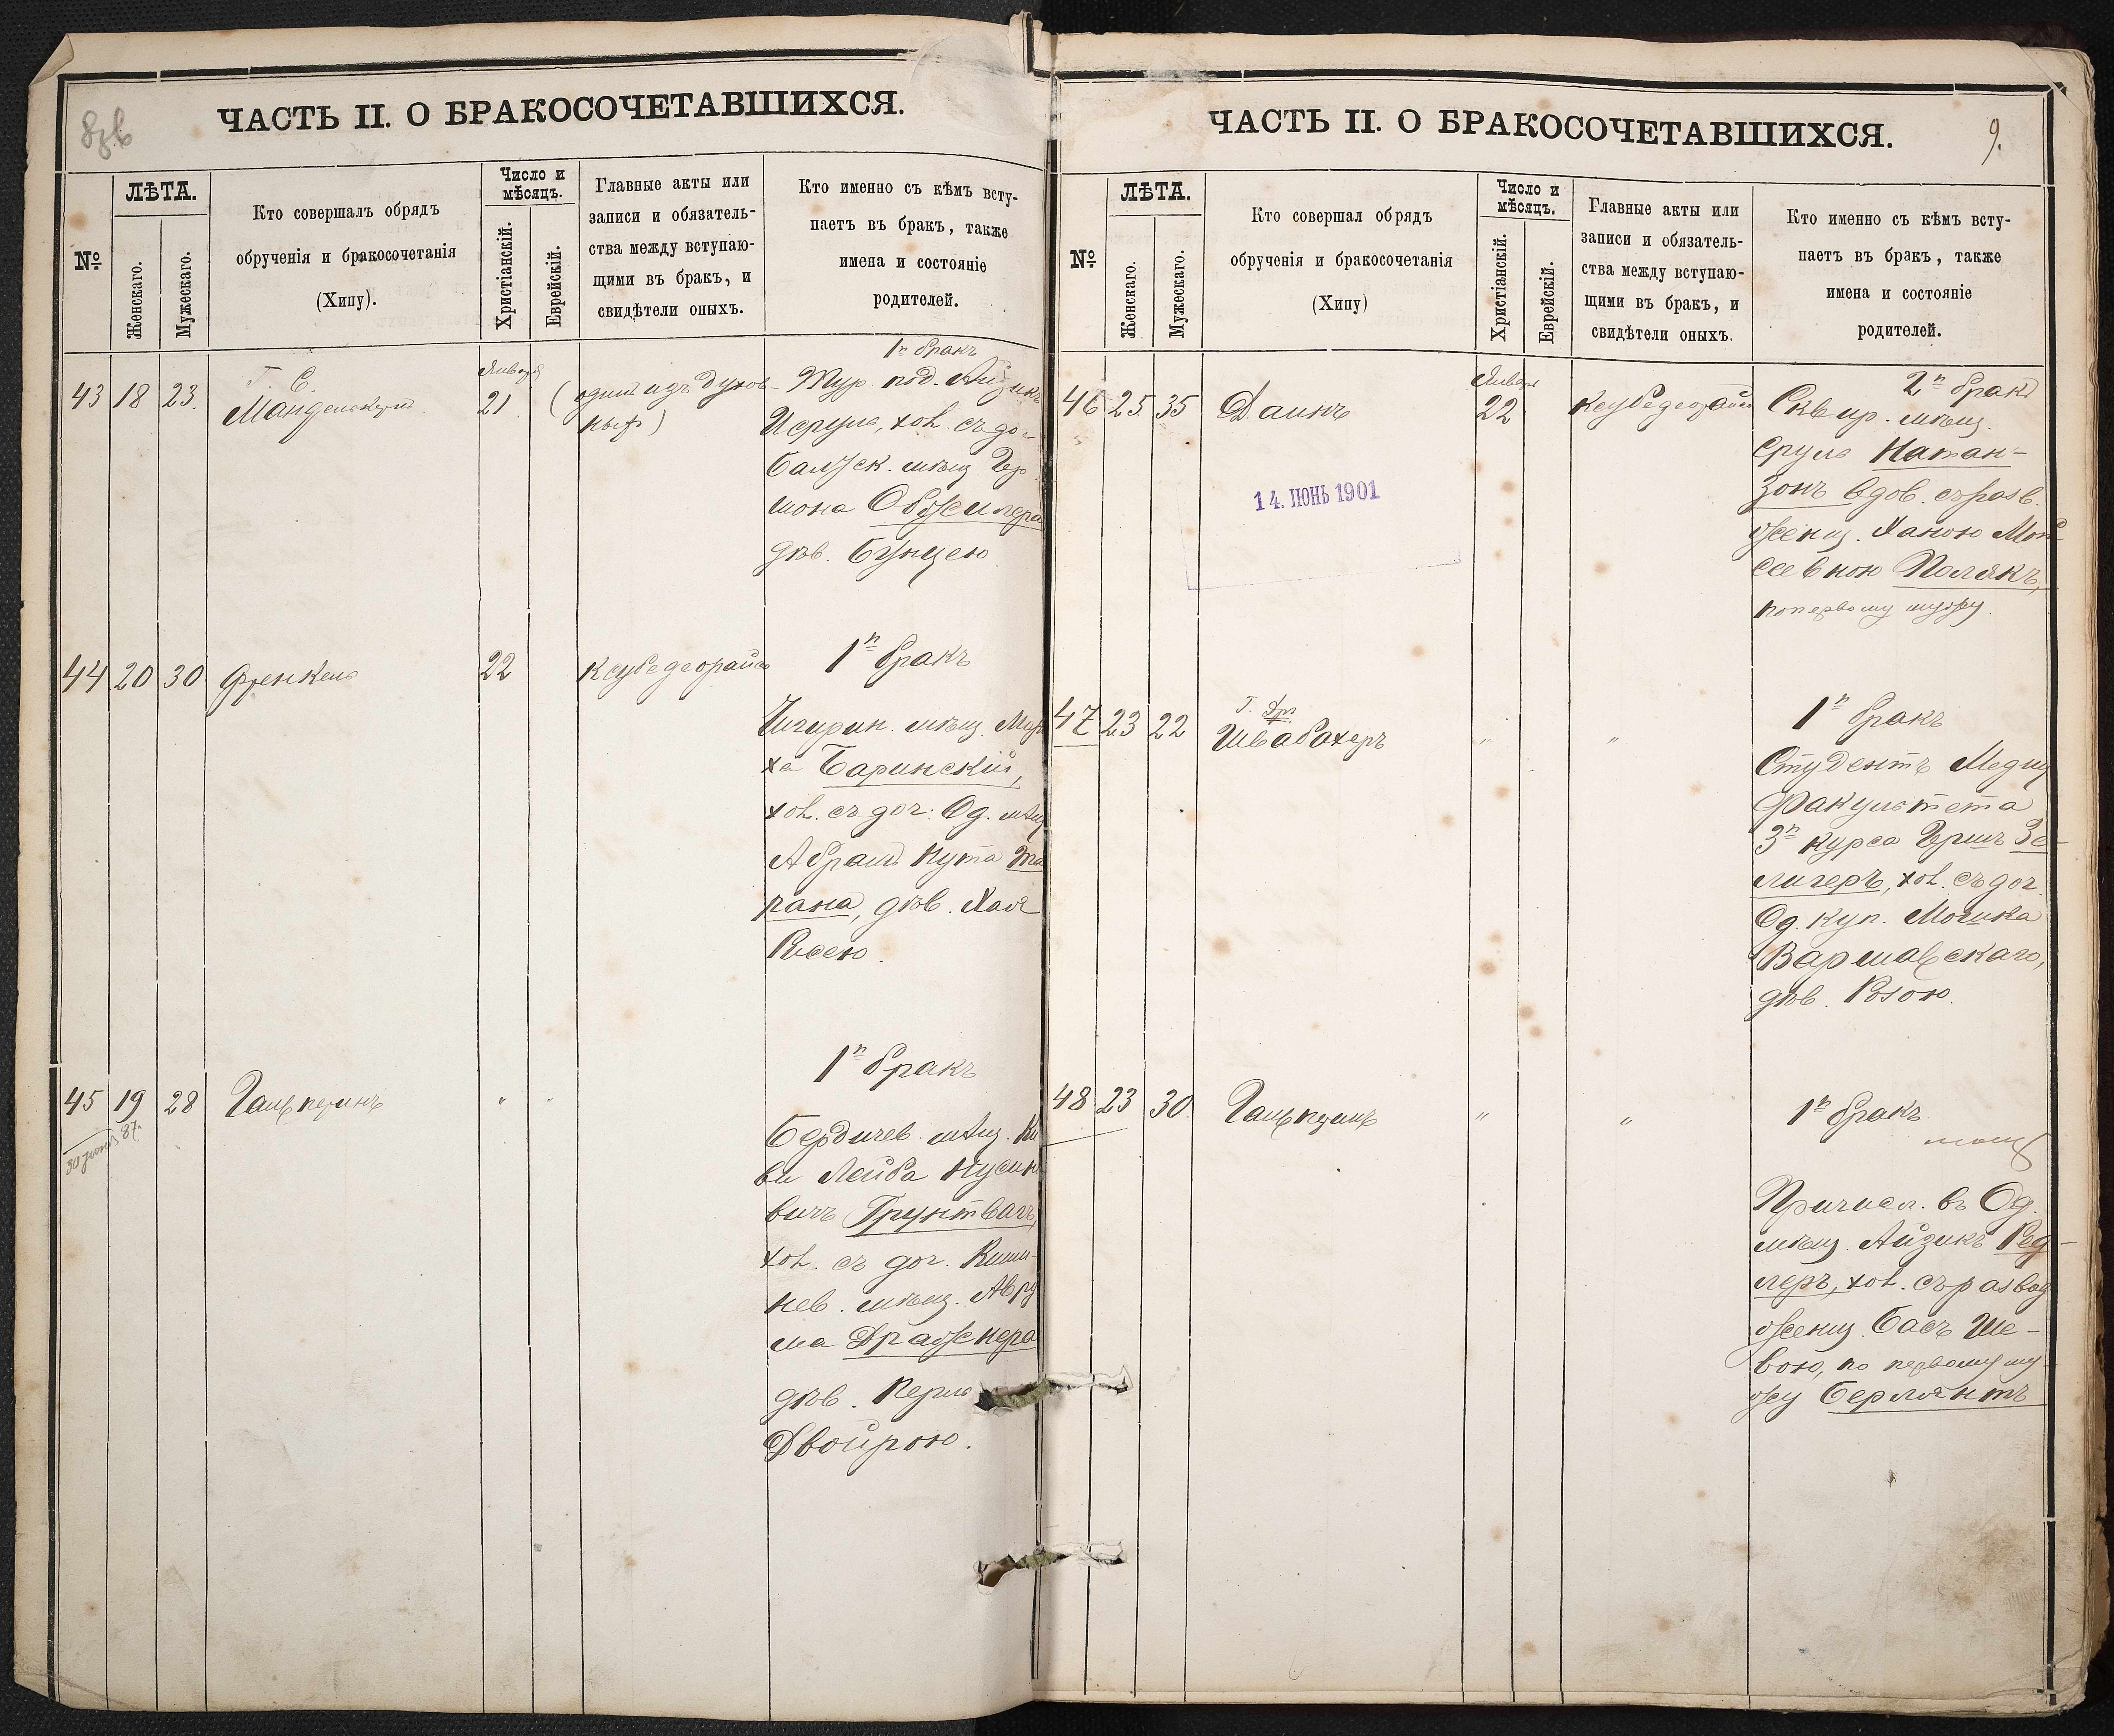 ЧАСТЬ II. О БРАКОСОЧЕТАВШИХСЯ.
№
ЛѢТА.
Женскаго.
Мужескаго.
Кто совершалъ обрядъ
обрученія и бракосочетанія
(Хипу).
Число и
мѣсяцъ.
Христіанскій.
Еврейскій.
Главные акты или
записи и обязатель-
ства между вступаю-
щими въ бракъ, и
свидѣтели оныхъ.
Кто именно съ кѣмъ всту-
паетъ въ бракъ, также
имена и состояніе
родителей.
43 18 23.
Г. Е.
Января
21
(одинъ изъ духов-
ныхъ)
1й бракъ
Тур. под. Айзикъ
Исруль, хол. съ доч.
шона Обжилера
дѣв. Бунцею
44 20 30 Френкель 22 Ксубедеорайсо
1й бракъ
Чигирин. мѣщ.
ха Баринскій,
хол. съ доч. Од. мѣщ
Абрамъ Нута
рана, дѣв. Хая
Рисею.
45 19 28 Гальперинъ " "
30 87.
1й бракъ
Бердичев. мѣщ. Ки
ви Лейба Нусино
вичъ Грунтвагъ,
хол. съ доч. Киши-
нев. мѣщ. Авру
ма Дражнера
дѣв. Перля
Двойрою.
ЧАСТЬ II. О БРАКОСОЧЕТАВШИХСЯ.
9.
№
ЛѢТА.
Женскаго.
Мужескаго.
Кто совершал обрядъ
обрученія и бракосочетанія
(Хипу)
Число и
мѣсяцъ.
Христіанскій.
Еврейскій.
Главные акты или
записи и обязатель-
ства между вступаю-
щими въ бракъ, и
свидѣтели оныхъ.
Кто именно съ кѣмъ всту-
паетъ въ бракъ, также
имена и состояніе
родителей.
46 25 35 Даинъ
Января
22
Ксубедеорайсо
14. ІЮНЬ 1901
2й бракъ
Сквир. мѣщ.
Сруль Натан-
зонъ вдов. съ разв.
женщ. Ханою Мои
сеевною Полякъ,
по первому мужу.
47 23 22
Г. Др.
Швабахеръ
" "
1й бракъ
Студентъ Медиц
Факультета
3й курса Гершъ Зе-
лигеръ, хол. съ доч.
Од. куп. Мошка
Варшавскаго,
дѣв. Розою.
48 23 30. Гальперинъ " "
1й бракъ
Причисл. въ Од.
мѣщ. Айзикъ Ред-
леръ, хол. съ развод
женщ. Басъ Ше-
вою, по первому му-
жу Берлянтъ